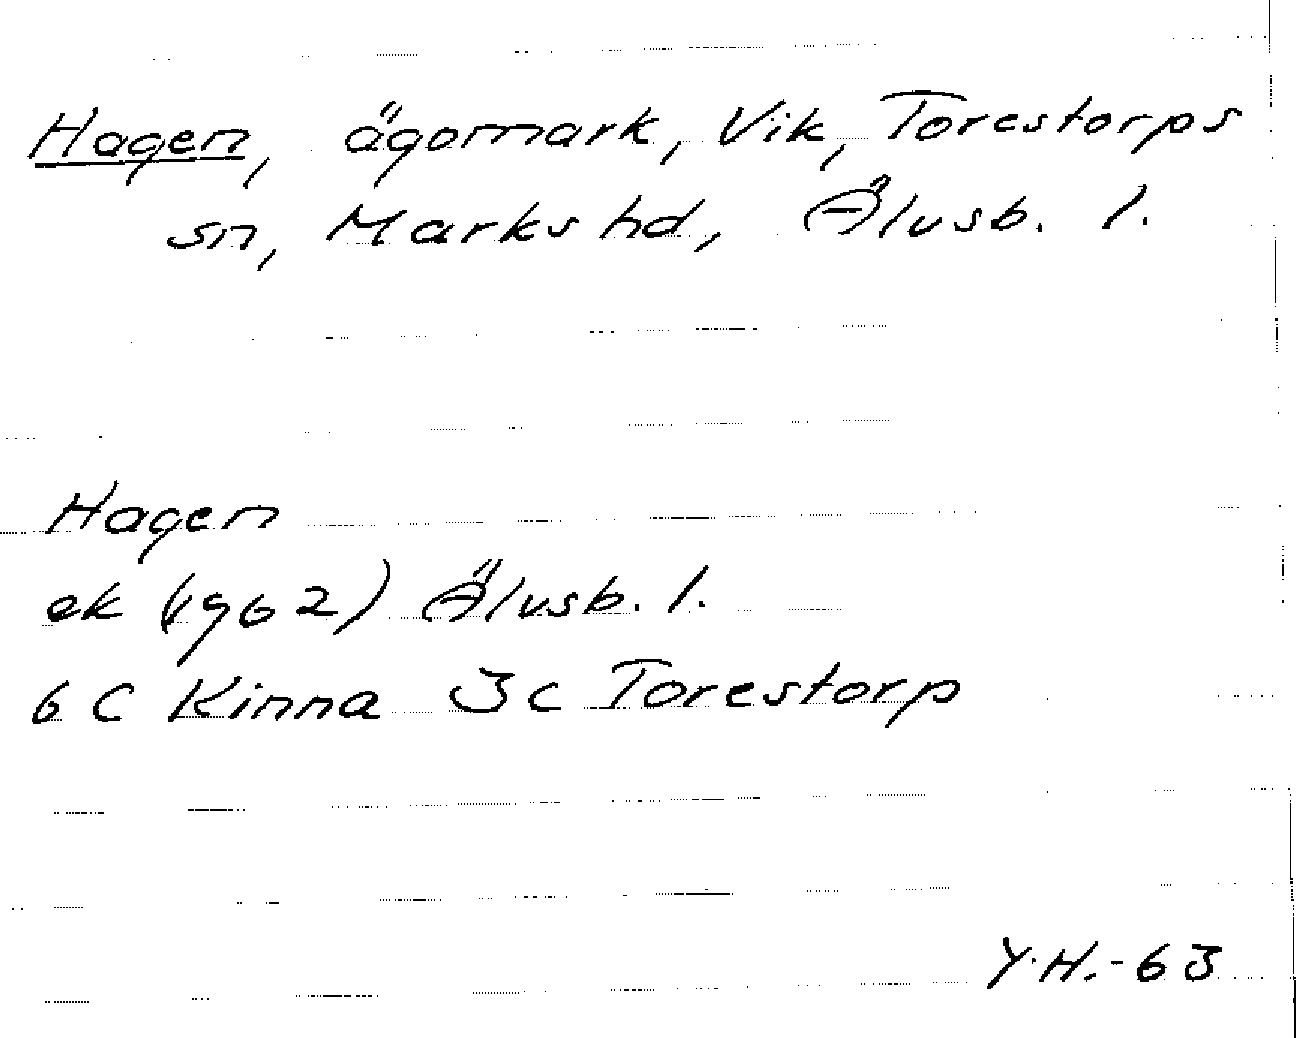 Hagen, ägomark, Vik, Torestorps
sn, Marks hd, Älvsb. l.
Hagen
ek (1962) Älvsb. l.
6 C Kinna 3c Torestorp
Y.H.-63